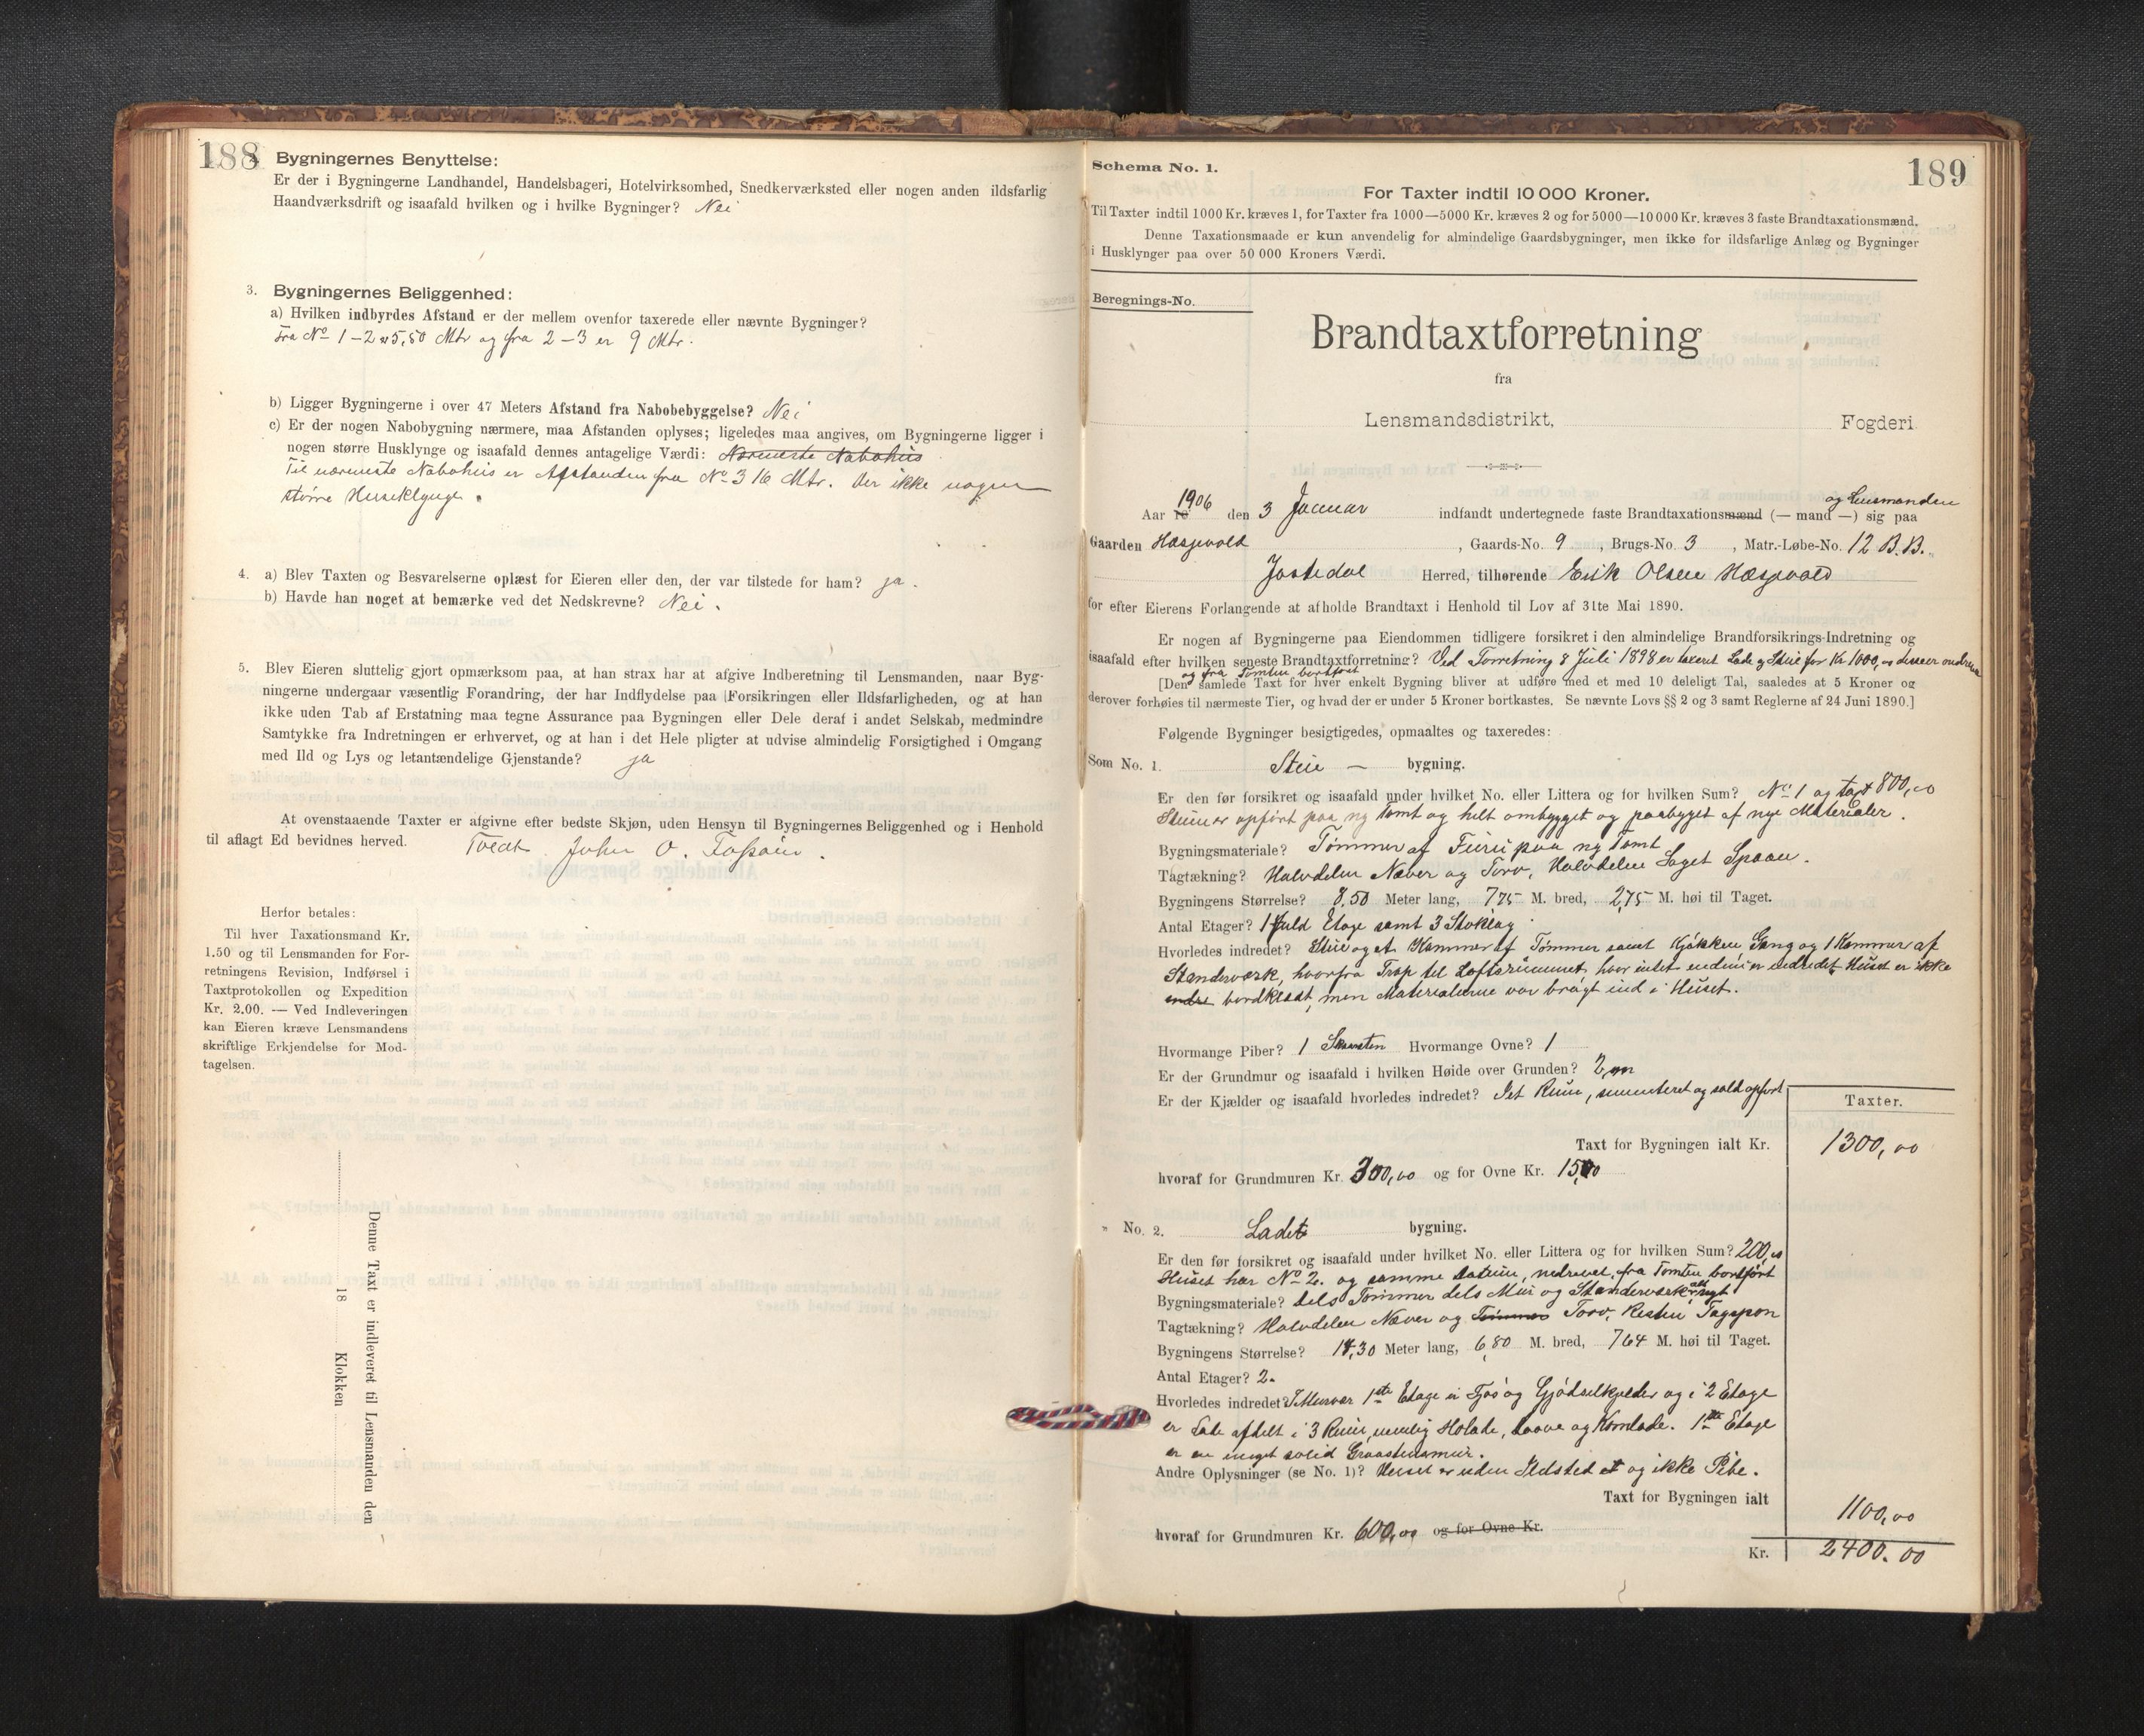 188
2. Bygningernes Benyttelse:
Er der i Bygningerne Landhandel, Handelsbageri, Hotelvirksomhed, Snedkerværksted eller nogen anden ildsfarlig
Haandværksdrift og isaafald hvilken og i hvilke Bygninger? Nei
3. Bygningernes Beliggenhed:
a) Hvilken indbyrdes Afstand er der mellem ovenfor taxerede eller nævnte Bygninger?
Fra No 1-2 er 5,50 Mtr og fra 2-3 er 9 Mtr.
b) Ligger Bygningerne i over 47 Meters Afstand fra Nabobebyggelse? Nei
c) Er der nogen Nabobygning nærmere, maa Afstanden oplyses; ligeledes maa angives, om Bygningerne ligger i
nogen større Husklynge og isaafald dennes antagelige Værdi: Nærmeste Nabohus
Til nærmeste Nabohus er Afstanden fra No 3 16 Mtr. Der ikke nogen
større Huseklynge.
4. a) Blev Taxten og Besvarelserne oplæst for Eieren eller den, der var tilstede for ham? ja.
b) Havde han noget at bemærke ved det Nedskrevne? Nei.
5. Blev Eieren sluttelig gjort opmærksom paa, at han strax har at afgive Indberetning til Lensmanden, naar Byg-
ningerne undergaar væsentlig Forandring, der har Indflydelse paa Forsikringen eller Ildsfarligheden, og at han
ikke uden Tab af Erstatning maa tegne Assurance paa Bygningen eller Dele deraf i andet Selskab, medmindre
Samtykke fra Indretningen er erhvervet, og at han i det Hele pligter at udvise almindelig Forsigtighed i Omgang
med Ild og Lys og letantændelige Gjenstande? ja
At ovenstaaende Taxter er afgivne efter bedste Skjøn, uden Hensyn til Bygningernes Beliggenhed og i Henhold
til aflagt Ed bevidnes herved. John O.
Herfor betales:
Til hver Taxationsmand Kr.
1.50 og til Lensmanden for For-
retningens Revision, Indførsel i
Taxtprotokollen og Expedition
Kr. 2.00. — Ved Indleveringen
kan Eieren kræve Lensmandens
skriftlige Erkjendelse for Mod-
tagelsen.
Denne Taxt er indleveret til Lensmanden den
18 Klokken
189
Schema No. 1.
For Taxter indtil 10 000 Kroner.
Til Taxter indtil 1000 Kr. kræves 1, for Taxter fra 1000—5000 Kr. kræves 2 og for 5000—10 000 Kr. kræves 3 faste Brandtaxationsmænd.
Denne Taxationsmaade er kun anvendelig for almindelige Gaardsbygninger, men ikke for ildsfarlige Anlæg og Bygninger
i Husklynger paa over 50 000 Kroners Værdi.
Beregnings-No.
Brandtaxtforretning
fra
Lensmandsdistrikt, Fogderi
og Lensmanden
Aar 1906 den 3 Januar indfandt undertegnede faste Brandtaxationsmænd (— mand —) sig paa
Gaarden Hæsjevold, Gaards-No. 9, Brugs-No. 3, Matr.-Løbe-No. 12 B.B.
Jostedal Herred, tilhørende Erik Olsen Hæsjevold
for efter Eierens Forlangende at afholde Brandtaxt i Henhold til Lov af 31te Mai 1890.
Er nogen af Bygningerne paa Eiendommen tidligere forsikret i den almindelige Brandforsikrings-Indretning og
isaafald efter hvilken seneste Brandtaxtforretning? Ved Forretning 8 Juli 1898 er taxeret Lade og Stue for Kr 1000,00
og fra Tomten bortført
[Den samlede Taxt for hver enkelt Bygning bliver at udføre med et med 10 deleligt Tal, saaledes at 5 Kroner og
derover forhøies til nærmeste Tier, og hvad der er under 5 Kroner bortkastes. Se nævnte Lovs §§ 2 og 3 samt Reglerne af 24 Juni 1890.]
Følgende Bygninger besigtigedes, opmaaltes og taxeredes:
Som No. 1. Stue — bygning.
Er den før forsikret og isaafald under hvilket No. eller Littera og for hvilken Sum? No 1 og taxt 800,00
Stuen er opført paa ny Tomt og helt ombygget og paabygget af nye Materialer.
Bygningsmateriale? Tømmer af Furu paa ny Tomt
Tagtækning? Halvdelen Næver og Torv, Halvdelen Saget Spaan.
Bygningens Størrelse? 8,50 Meter lang, 775 M. bred, 2,75 M. høi til Taget.
Antal Etager? 1 fuld Etage samt 3 Stoklag
Hvorledes indredet? Stue og et Kammer af Tømmer samt Kjøkken Gang og 1 Kammer af
Stenderværk, hvorfra Trap til Loftsrummet, hvor intet endnu er indredet. Huset er ikke
endnu bordklædt, men Materialerne var bragt ind i Huset.
Hvormange Piber? 1 Skorsten Hvormange Ovne? 1
Er der Grundmur og isaafald i hvilken Høide over Grunden? 2 m
Er der Kjælder og isaafald hvorledes indredet? Et Rum, sementeret og solid opført
Taxter.
Taxt for Bygningen ialt Kr. 1300,00
hvoraf for Grundmuren Kr. 300,00 og for Ovne Kr. 15,00
" No. 2. Lade bygning.
Er den før forsikret og isaafald under hvilket No. eller Littera og for hvilken Sum? 200,00
Huset har No 2. og samme Datum, nedrevet, fra Tomten bortført
Bygningsmateriale? Dels Tømmer dels Mur og Stenderværk alt nyt
Tagtækning? Halvdelen Næver og Tømmer Torv, Resten Tagspon
Bygningens Størrelse? 14,30 Meter lang, 6,80 M. bred, 764 M. høi til Taget.
Antal Etager? 2.
Hvorledes indredet? I Murvær 1ste Etage er Fjøs og Gjødselkjelder og i 2 Etage
er Lade afdelt i 3 Rum, nemlig Hølade, Laave og Kornlade. 1ste Etage
er en meget solid Graastensmur.
Andre Oplysninger (se No. 1)? Huset er uden Ildsted og ikke Pibe.
Taxt for Bygningen ialt 1100,00
hvoraf for Grundmuren Kr. 600,00 og for Ovne Kr.
Kr. 2400.00